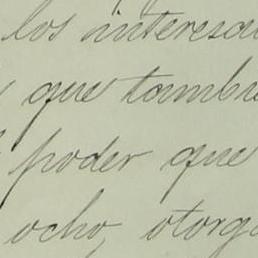 los interesa
que tambi
poder que
ocho, otorg